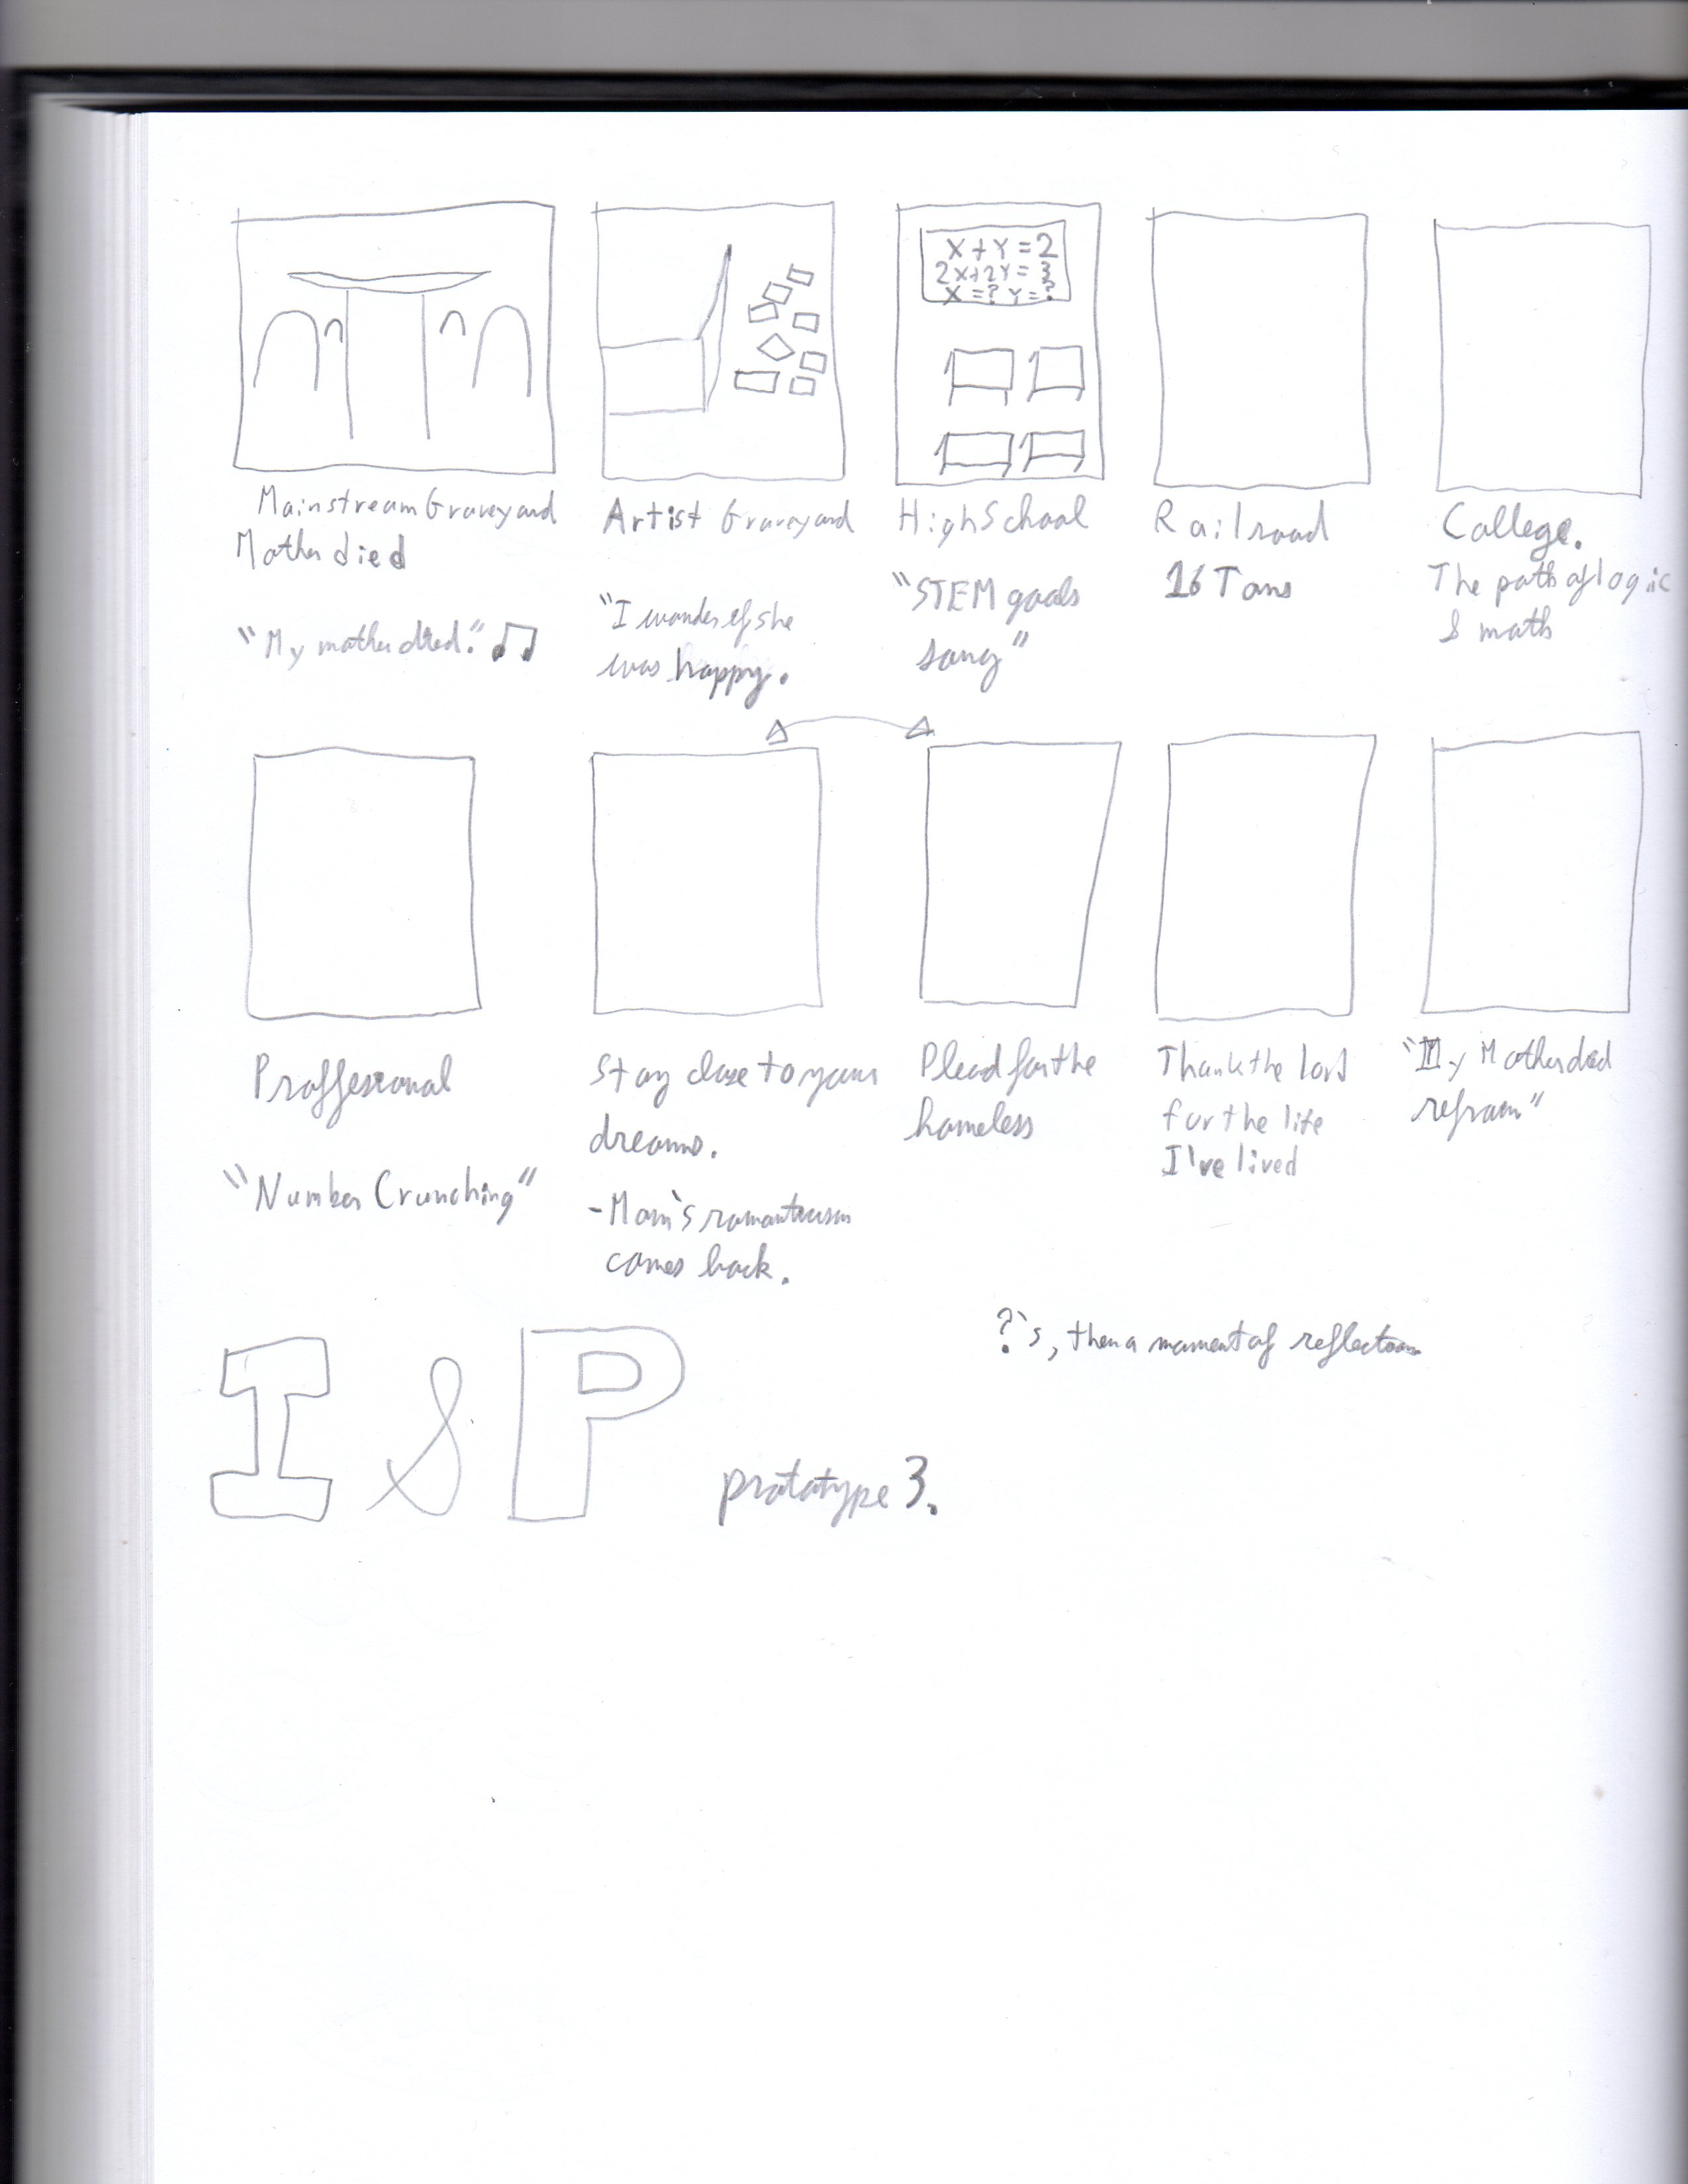 X + Y = 2
2X+2Y = 3
X = ? Y = ?
Mainstream Graveyard
Mother died
"My mother died." ♫
Artist Graveyard
"I wonder if she
was happy.
High School
"STEM goals
song"
Railroad
16 Tons
College.
The path of logic
& math
Proffesional
"Number Crunching"
Stay close to your
dreams.
- Mom's romanticism
comes back.
Plead for the
homeless
Thank the lord
for the life
I've lived
"My Mother died
refrain"
?'s, then a moment of reflection
I & P
prototype 3.